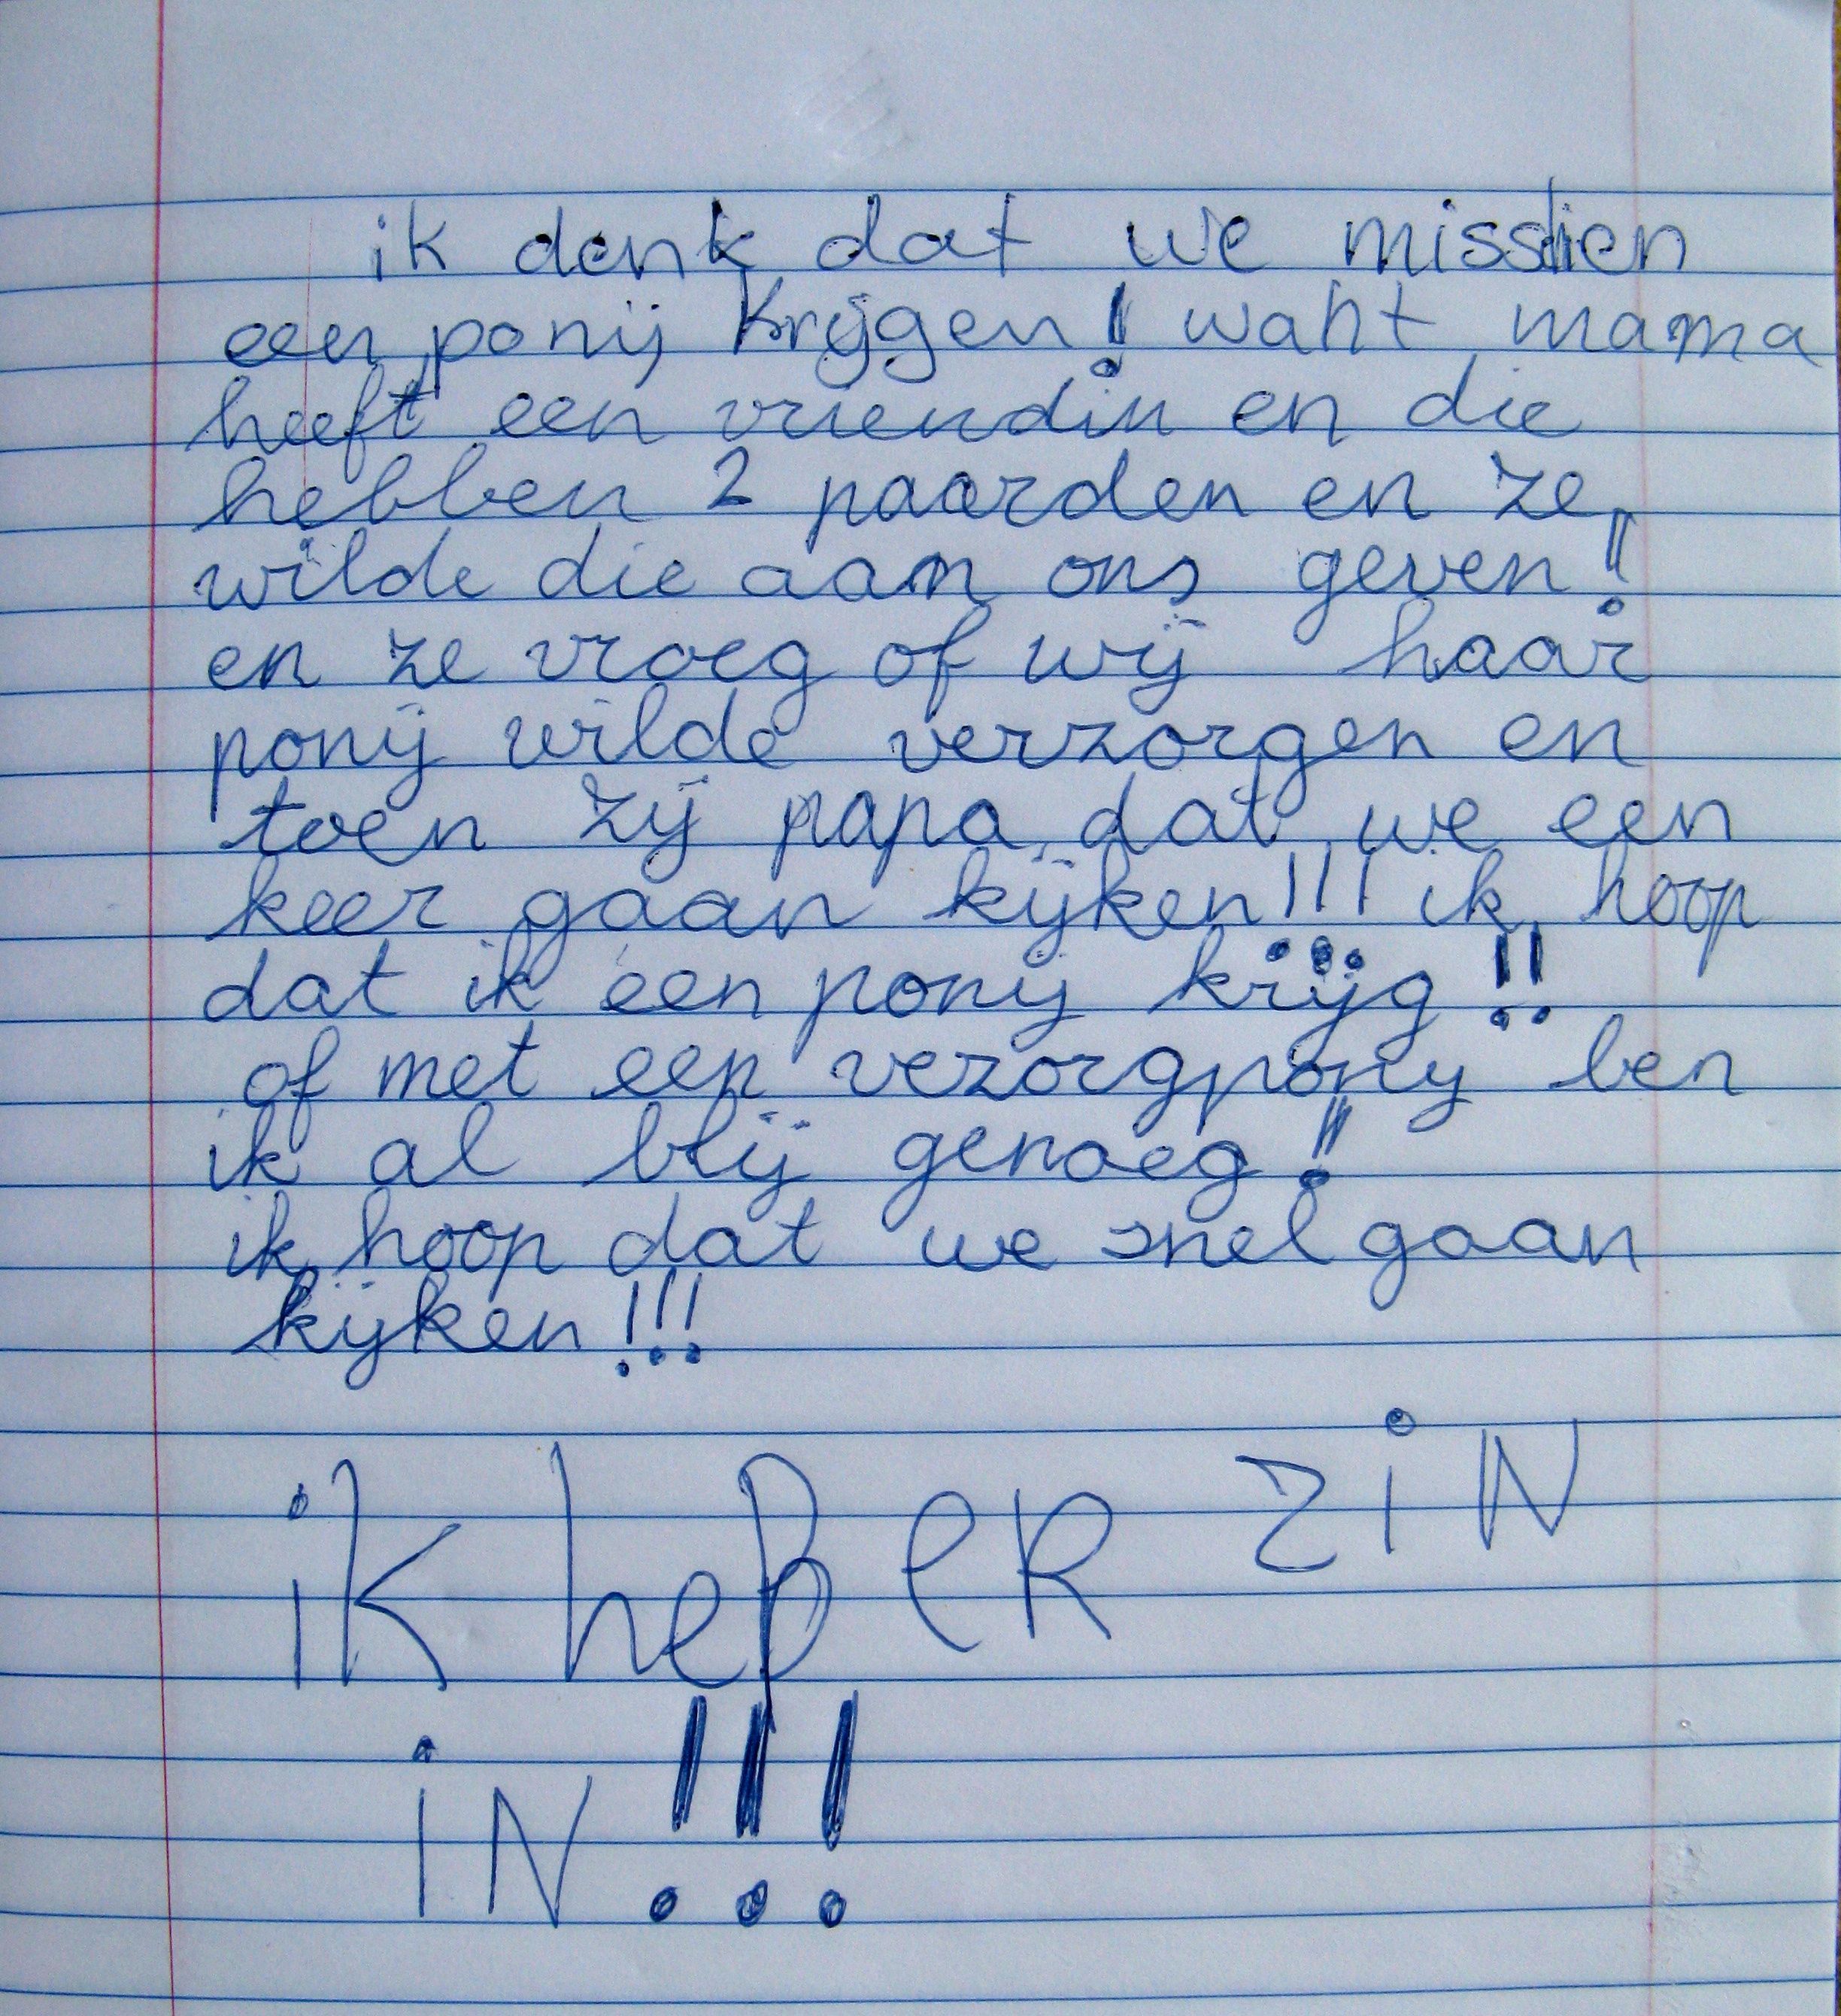 ik denk dat we misschien
een ponij krijgen! want mama
heeft een vriendin en die
hebben 2 paarden en ze
wilde die aan ons geven!!
en ze vroeg of wij haar
ponij wilde verzorgen en
toen zij papa dat we een
keer gaan kijken!!! ik hoop
dat ik een ponij krijg!!
of met een vezorgpony ben
ik al blij genoeg!!
ik hoop dat we snel gaan
kijken!!!
ik heb eR ziN
iN!!!